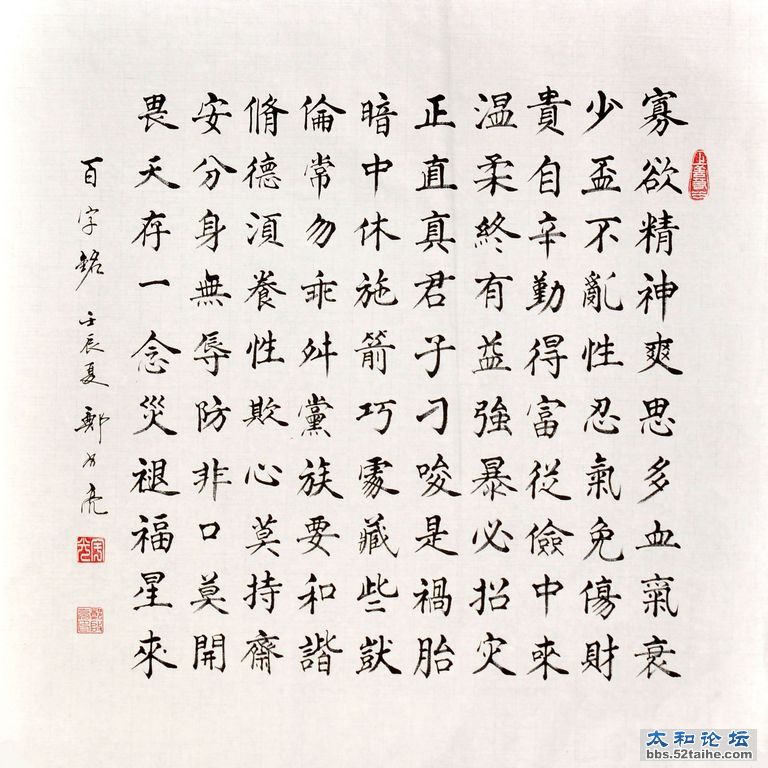 寡欲精神爽思多血氣衰
少盃不亂性忍氣免傷財
貴自辛勤得富從儉中來
温柔終有益強暴必招灾
正直真君子刁唆是禍胎
暗中休施箭巧處藏些獃
倫常勿乖舛黨族要和諧
脩德須養性欺心莫持齋
安分身無辱防非口莫開
畏天存一念災褪福星來
百字銘 壬辰夏 鄭亮
太和论坛
bbs.52taihe.com